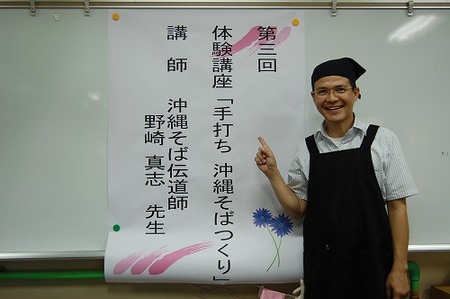 第三回
体験講座「手打ち 沖縄そばつくり」
講師 沖縄そば伝道師
野崎 真志 先生